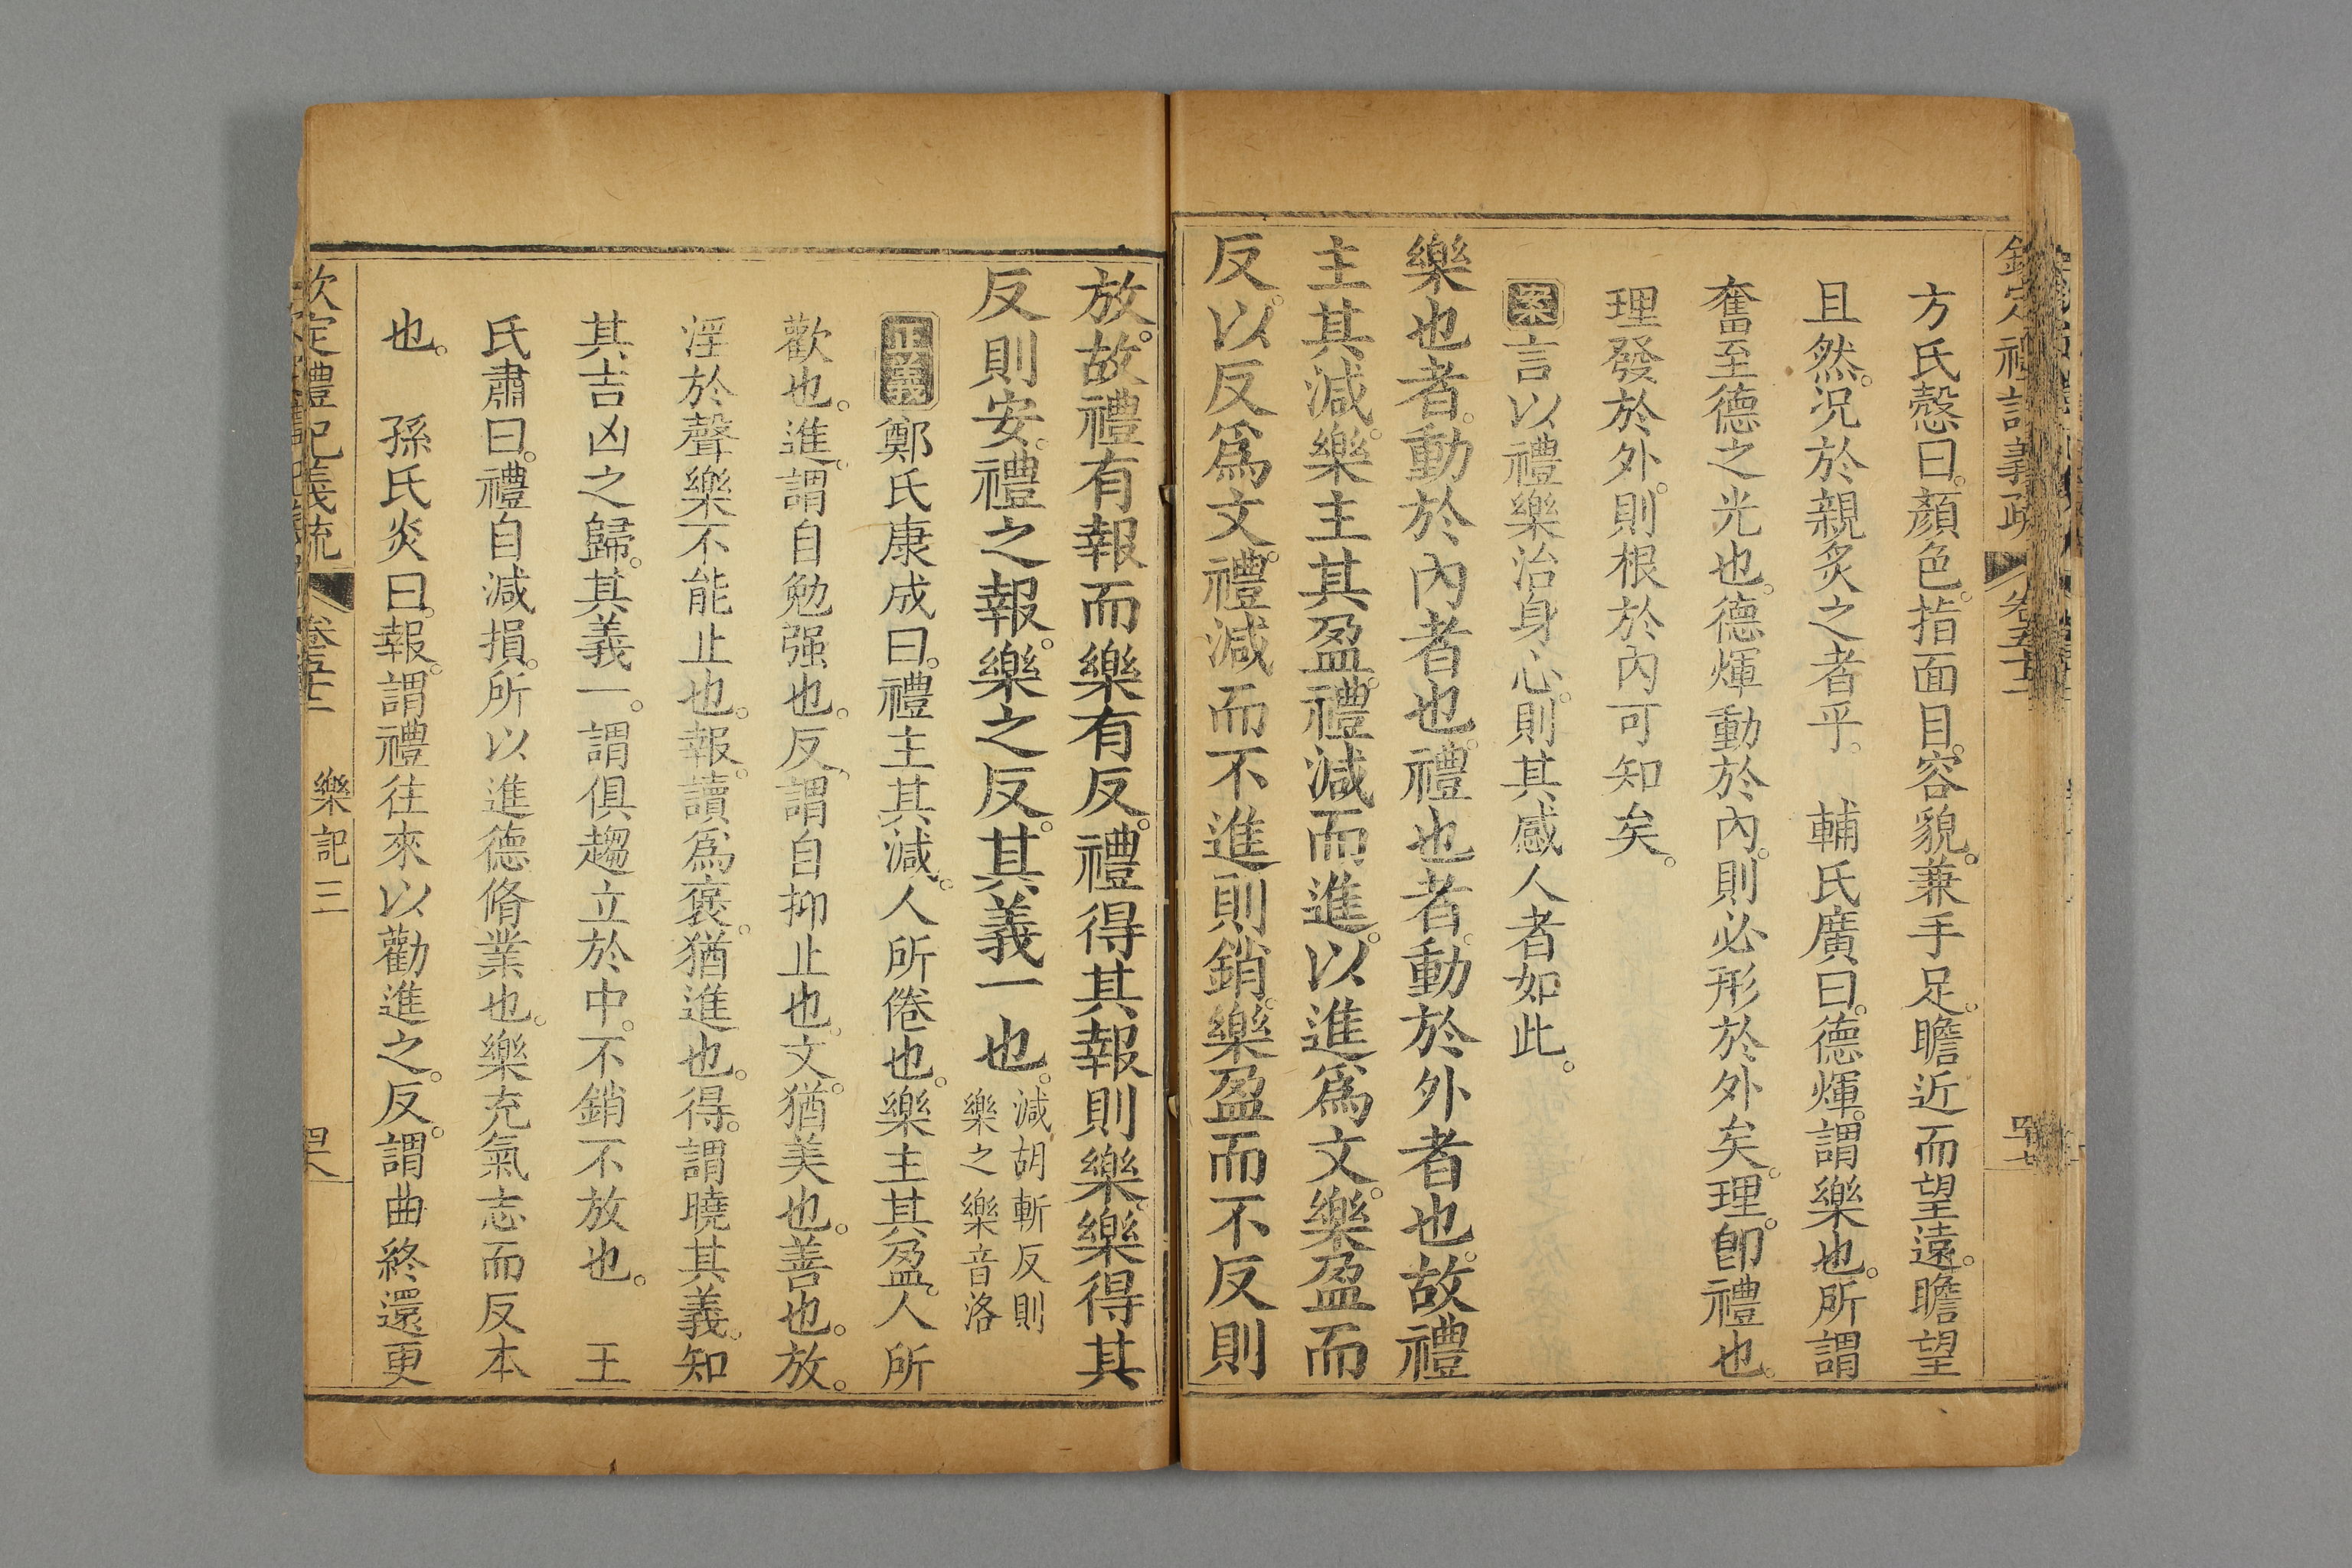 方氏慤曰。顏色。指面目。容貌。兼手足。瞻近而望遠。瞻望
且然。況於親炙之者乎。　輔氏廣曰。德煇。謂樂也。所謂
奮至德之光也。德煇動於內。則必形於外矣。理。卽禮也。
理發於外。則根於內可知矣。
案言以禮樂治身心。則其感人者如此。
樂也者。動於內者也。禮也者。動於外者也。故禮
主其減。樂主其盈。禮減而進。以進爲文。樂盈而
反。以反爲文。禮減而不進則銷。樂盈而不反則
放。故禮有報而樂有反。禮得其報則樂。樂得其
反則安。禮之報。樂之反。其義一也。減胡斬反則
樂之樂音洛
正義鄭氏康成曰。禮主其減。人所倦也。樂主其盈。人所
歡也。進。謂自勉强也。反。謂自抑止也。文。猶美也。善也。放。
淫於聲樂不能止也。報。讀爲褒。猶進也。得。謂曉其義。知
其吉凶之歸。其義一。謂俱趨立於中。不銷不放也。　王
氏肅曰。禮自減損。所以進德脩業也。樂充氣志而反本
也。　孫氏炎曰。報。謂禮往來以勸進之。反。謂曲終還更
欽定禮記義疏
樂記三